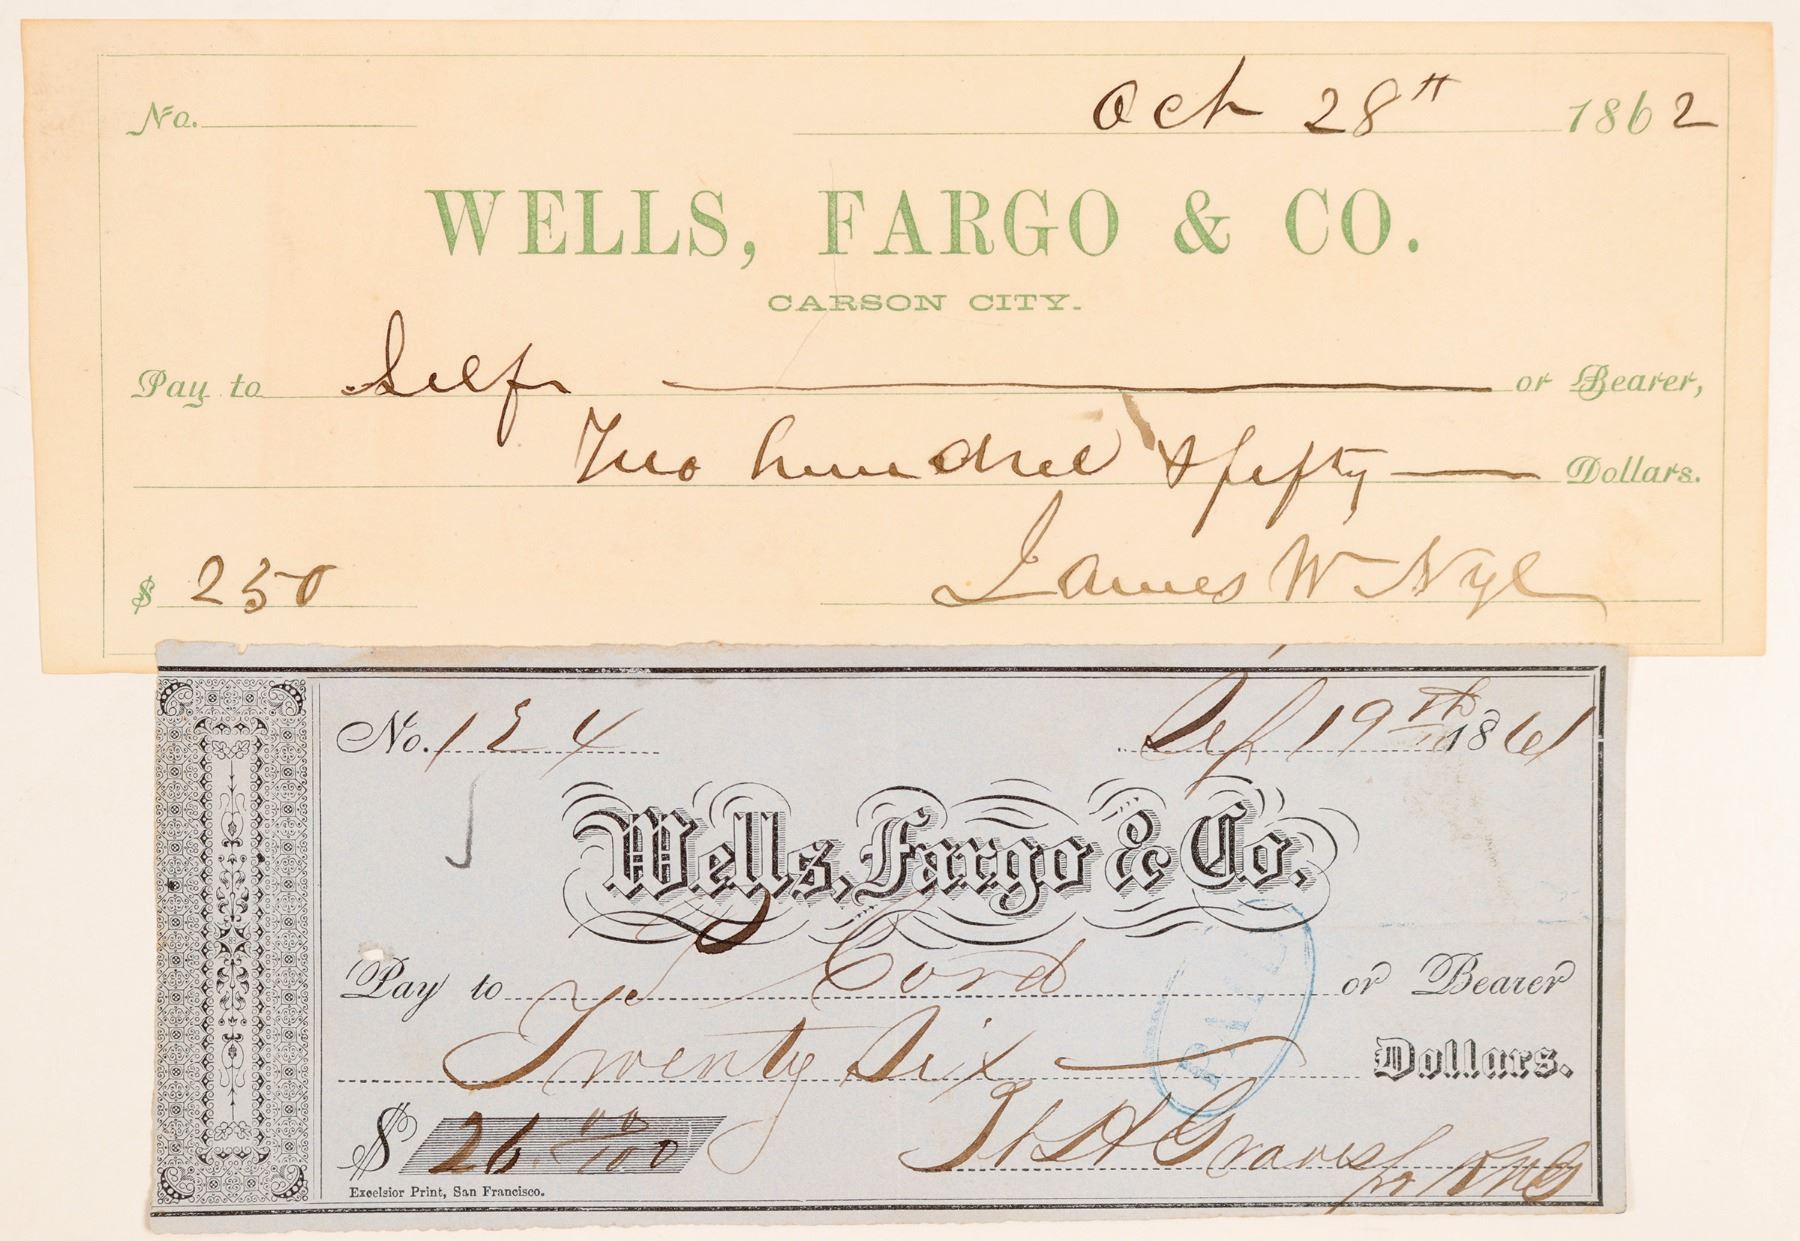 No. Oct 28th 1862
WELLS, FARGO & CO.
CARSON CITY.
Pay to Self or Bearer,
Two hundred & fifty Dollars.
$ 250 James W Nye
No. 154 Sep 19th 1861
Wells, Fargo & Co.
Pay to Cord or Bearer
Twenty Six Dollars.
PAID
$ 26 00/100 H Graves for RNG
Excelsior Print, San Francisco.